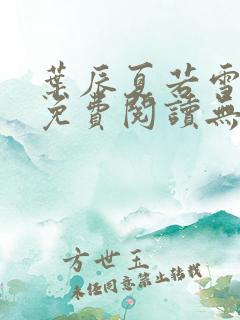 葉辰夏若雪
免費閱讀無
方世玉
未经同意禁止转载